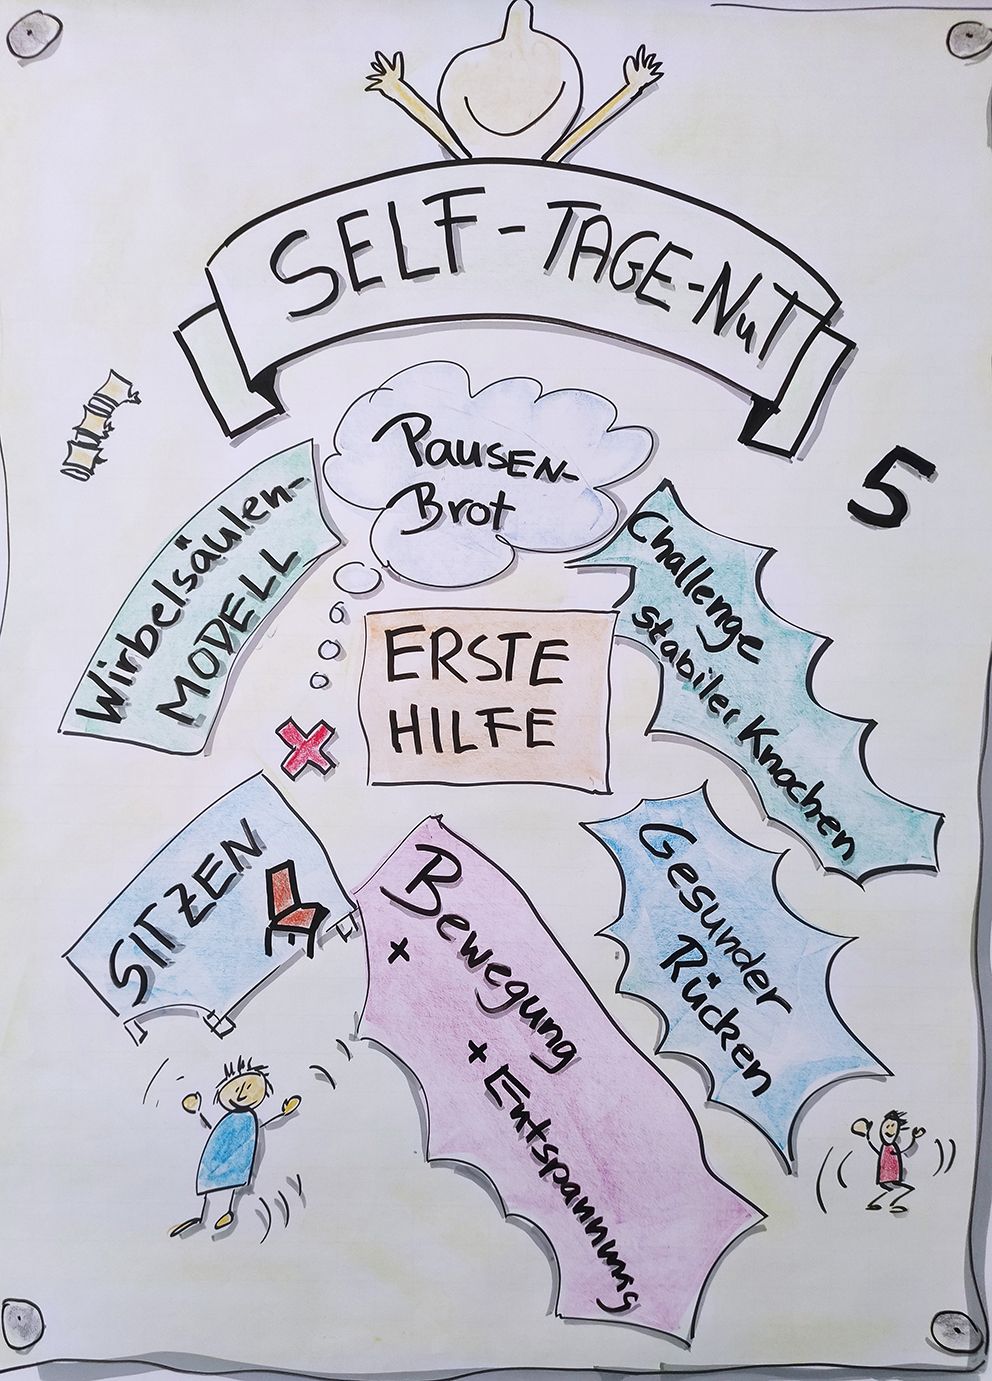 SELF-TAGE-NuT
PAUSEN-
Brot
5
Wirbelsäulen-
MODELL
Challenge
stabiler Knochen
ERSTE
HILFE
SITZEN
Bewegung
+
+ Entspannung
Gesunder
Rücken